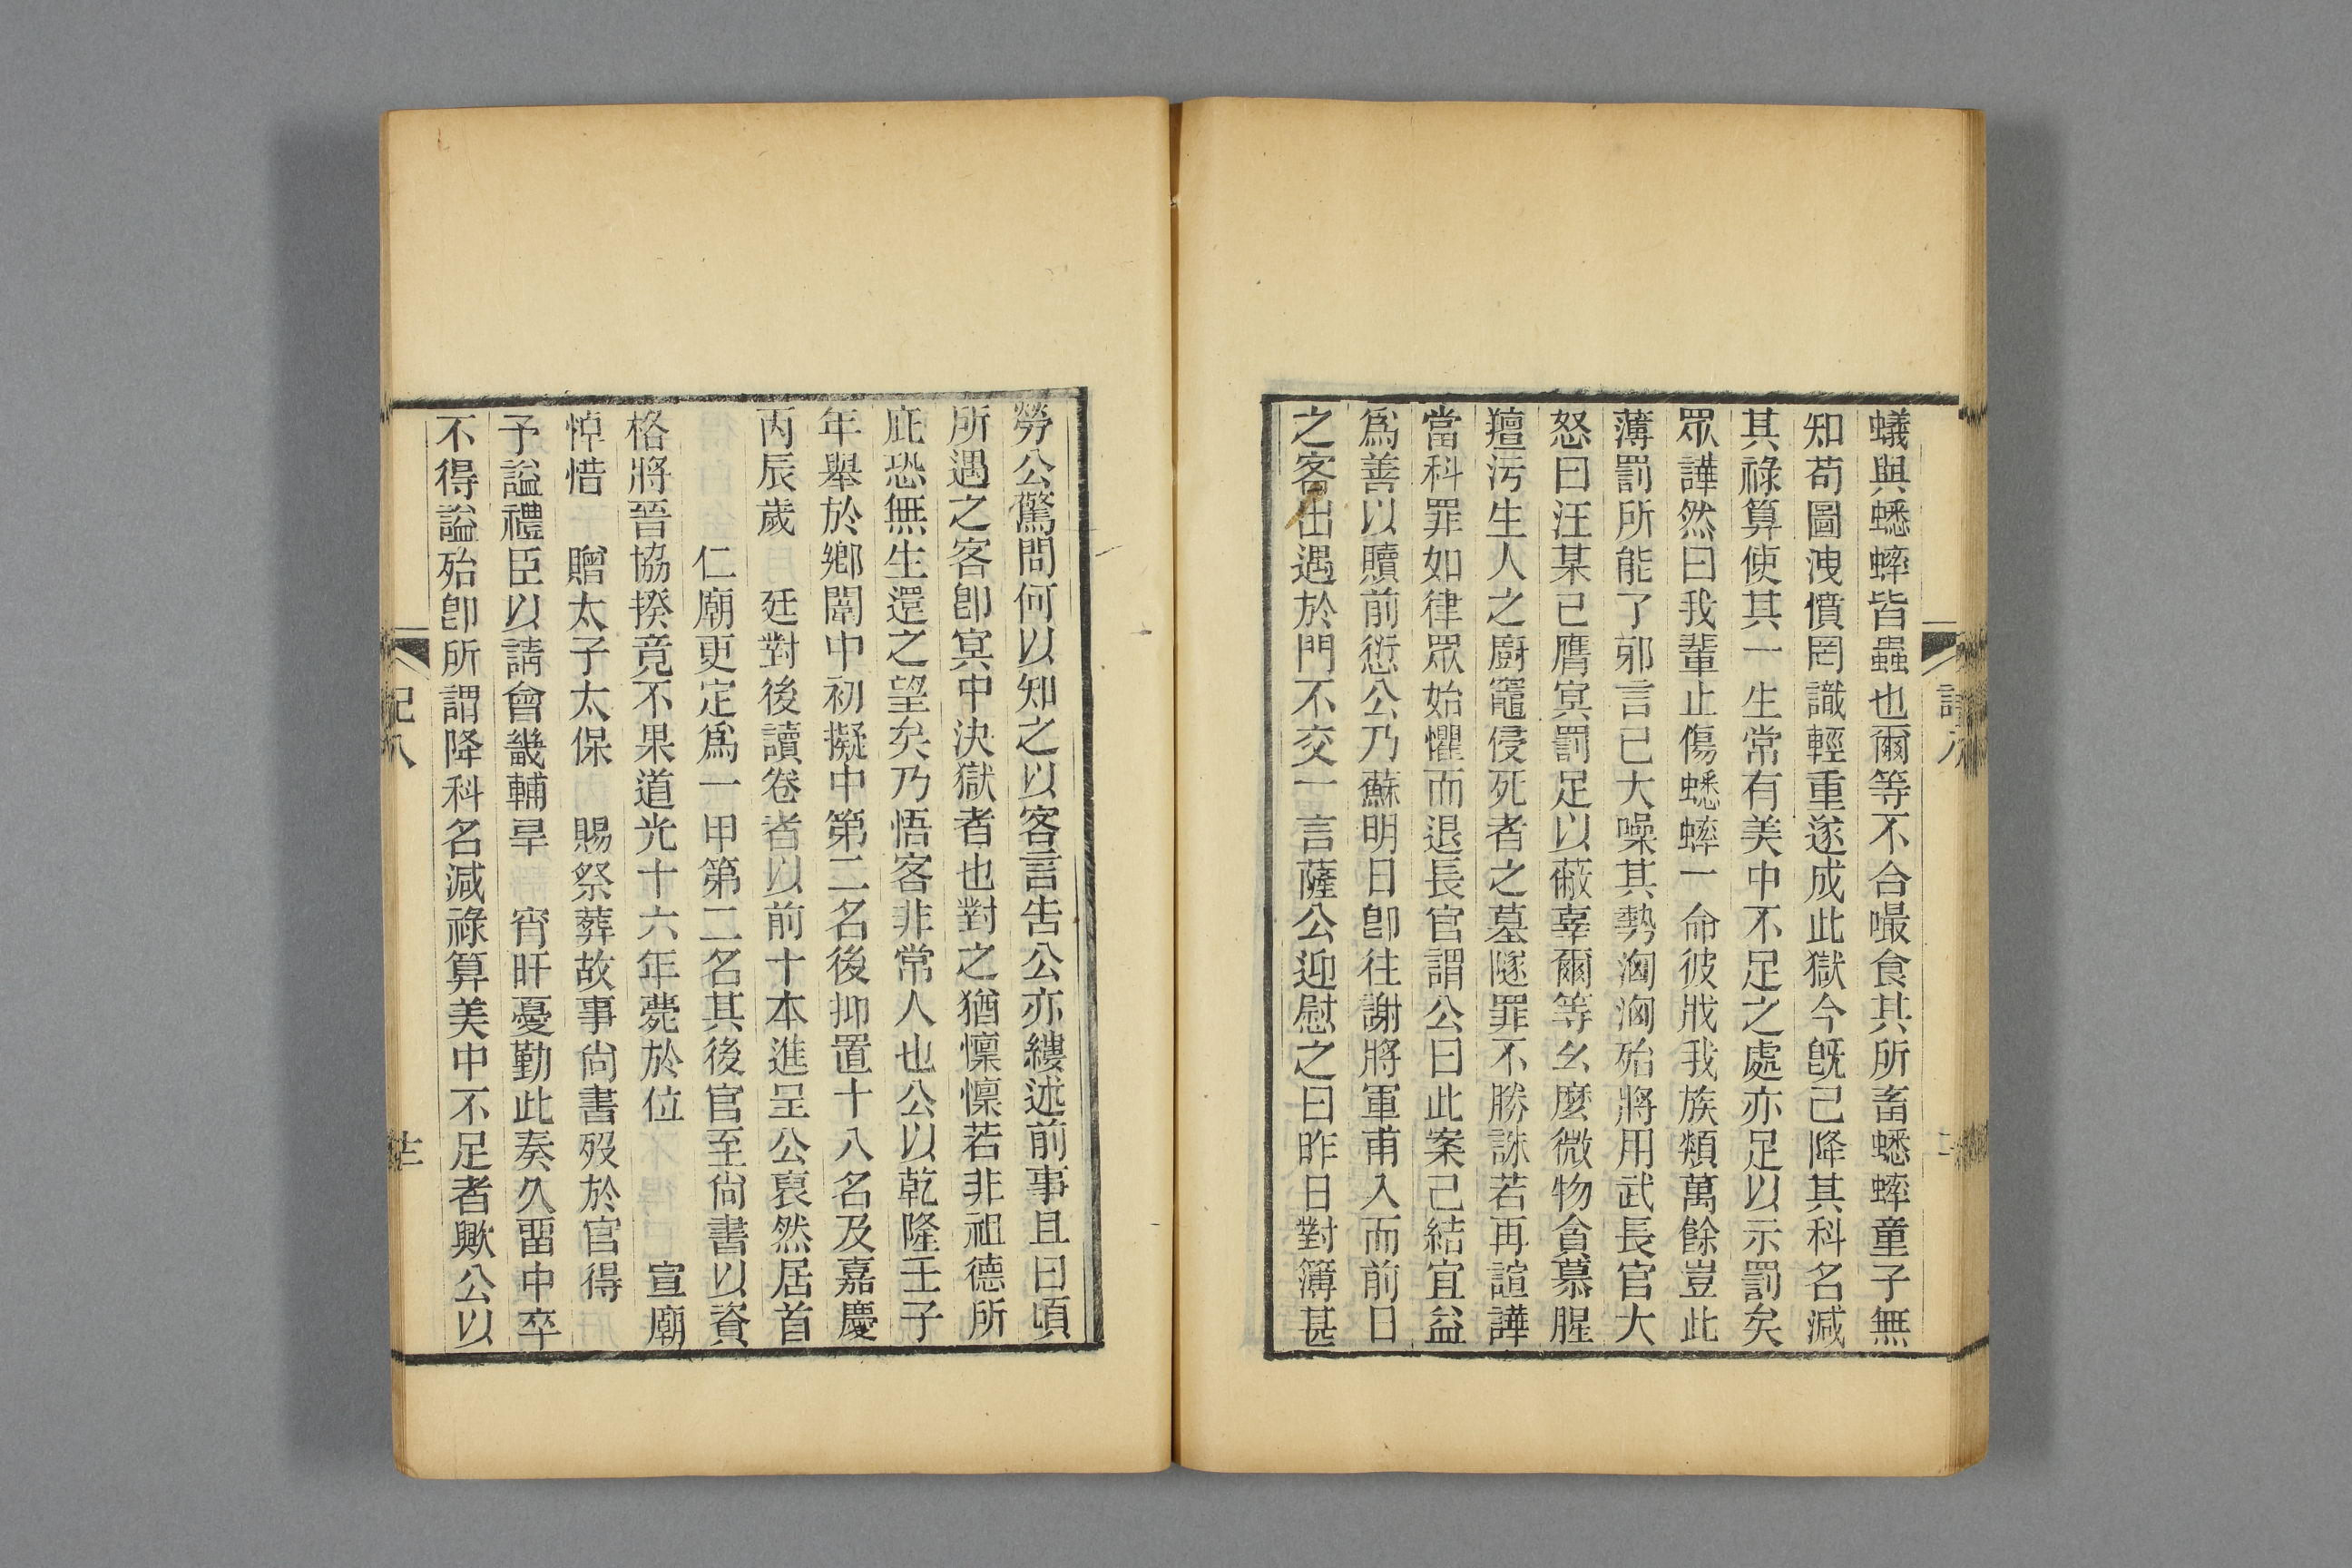 蟻與蟋蟀皆蟲也爾等不合嘬食其所畜蟋蟀童子無
知苟圖洩憤罔識輕重遂成此獄今旣已降其科名減
其祿算使其一生常有美中不足之處亦足以示罰矣
眾譁然曰我輩止傷蟋蟀一命彼戕我族類萬餘豈此
薄罰所能了郭言已大噪其勢洶洶殆將用武長官大
怒曰汪某已膺冥罰足以蔽辜爾等幺麼微物貪慕腥
羶污生人之廚竈侵死者之墓隧罪不勝誅若再諠譁
當科罪如律眾始懼而退長官謂公曰此案已結宜益
爲善以贖前愆公乃蘇明日卽往謝將軍甫入而前日
之客出遇於門不交一言薩公迎慰之曰昨日對簿甚
勞公驚問何以知之以客言告公亦縷述前事且曰頃
所遇之客卽冥中決獄者也對之猶懍懍若非祖德所
庇恐無生還之望矣乃悟客非常人也公以乾隆壬子
年舉於鄉闈中初擬中第二名後抑置十八名及嘉慶
丙辰歲 廷對後讀卷者以前十本進呈公裒然居首
仁廟更定爲一甲第二名其後官至尙書以資
格將晉協揆竟不果道光十六年薨於位 宣廟
悼惜 贈太子太保 賜祭葬故事尙書歿於官得
予謚禮臣以請會畿輔旱 宵旰憂勤此奏久畱中卒
不得謚殆卽所謂降科名減祿算美中不足者歟公以
記八